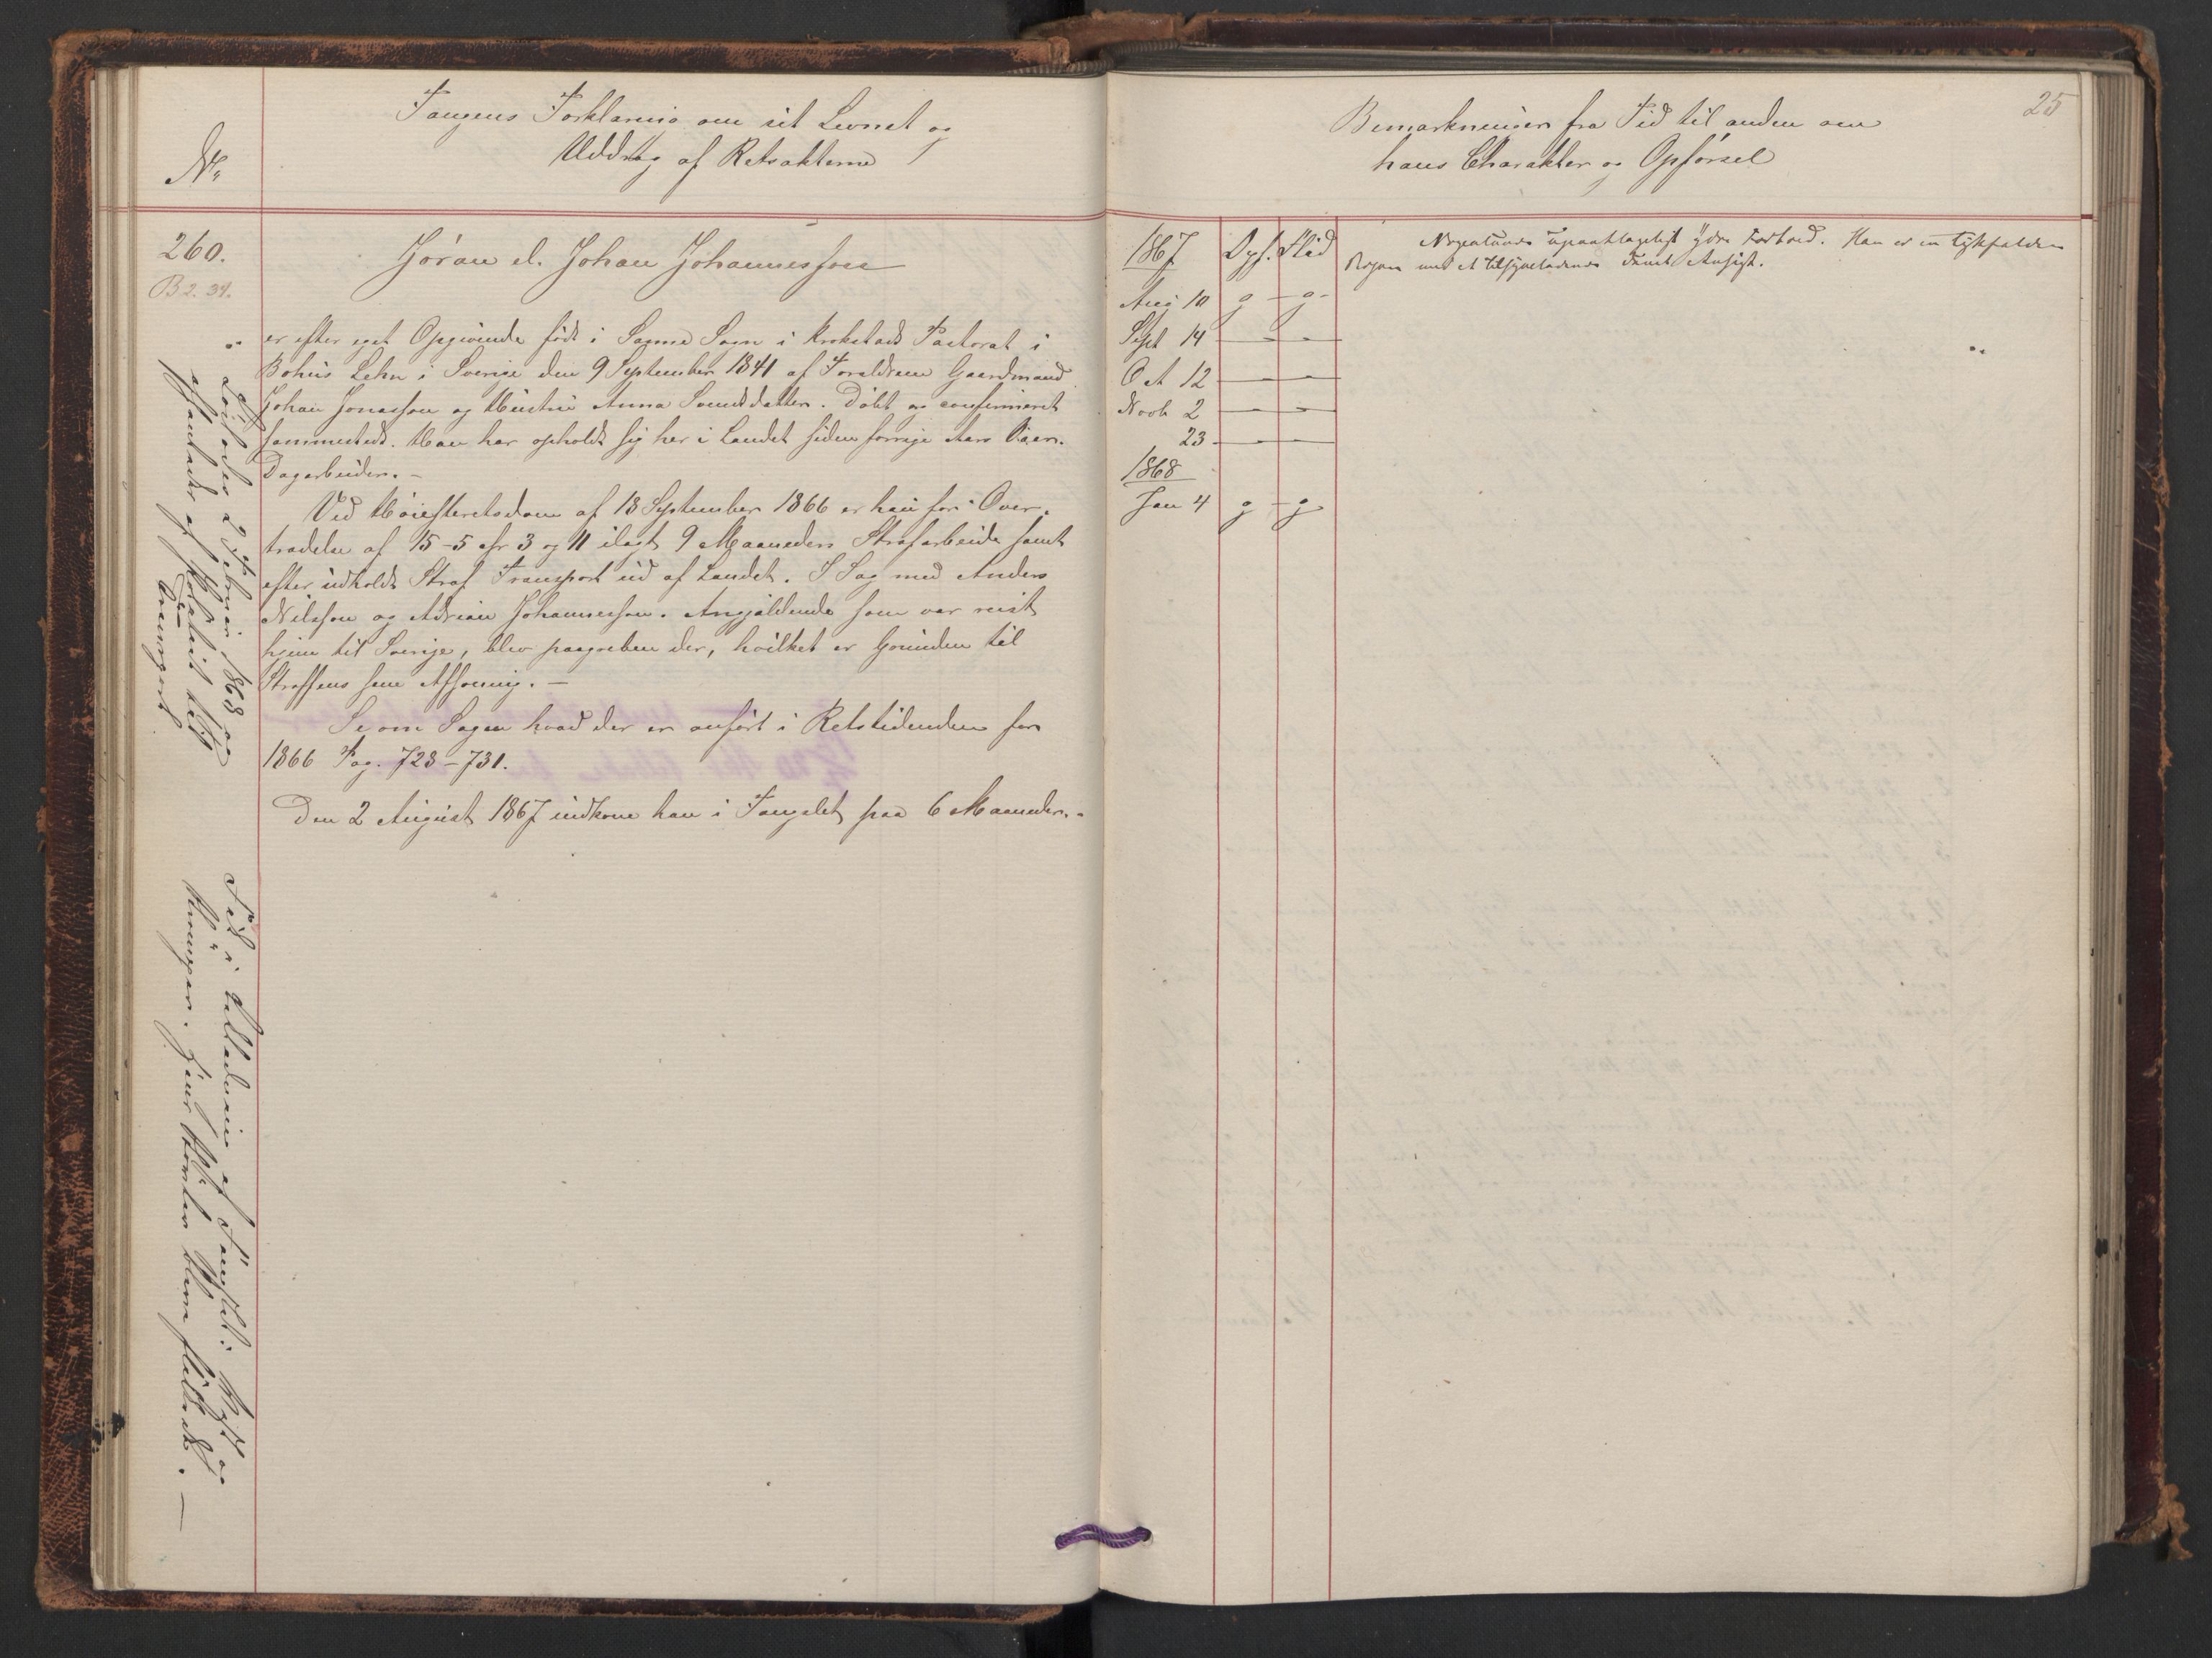 Fangens Forklaring om sit Levnet og
Uddrag af Retsakterne
No
260.
B 2. 34.
Jøran el. Johan Johannessen
er efter eget Opgivende født i Sanne Sogn i Krokstads Pastorat i
Bohus Lehn i Sverige den 9 September 1841 af Forældrene Gaardmand
Johan Jonasson og Hustru Anna Svendsdatter. Døbt og confirmeret
sammesteds. Han har opholdt sig her i Landet siden forrige Aars Vaar.
Dagarbeider. –
Ved Høiesteretsdom af 18 September 1866 er han for Over-
trædelse af 15-5 cfr 3 og 11 ilagt 9 Maaneders Strafarbeide samt
efter udholdt Straf Transport ud af Landet. I Sag med Anders
Nilsson og Adrian Johannessen. Angjældende som var reist
hjem til Sverige, blev paagreben der, hvilket er Grunden til
Straffens sene Afsoning. –
Se om Sagen hvad der er anført i Retstidenden for
1866 Pag. 728–731.
Den 2 August 1867 indkom han i Fangslet paa 6 Maaneder. -
Løslades 2 Februar 1868 og
afsendes af Politiet til
Svinesund
Fed i Udtaleser af Fængslet: Kraft og
Kroppen.
25
Bemærkninger fra Tid til anden om
hans Charakter og Opførsel
1867 Opf. Flid
Aug 10 g – g -
Sept 14 – –
Oct 12 – –
Novb 2 – –
23 – –
1868
Jan 4 g – g
upaaklageligt ydre Forhold. Han er en tykfalden
Person med et tilsyneladende Ansigt.